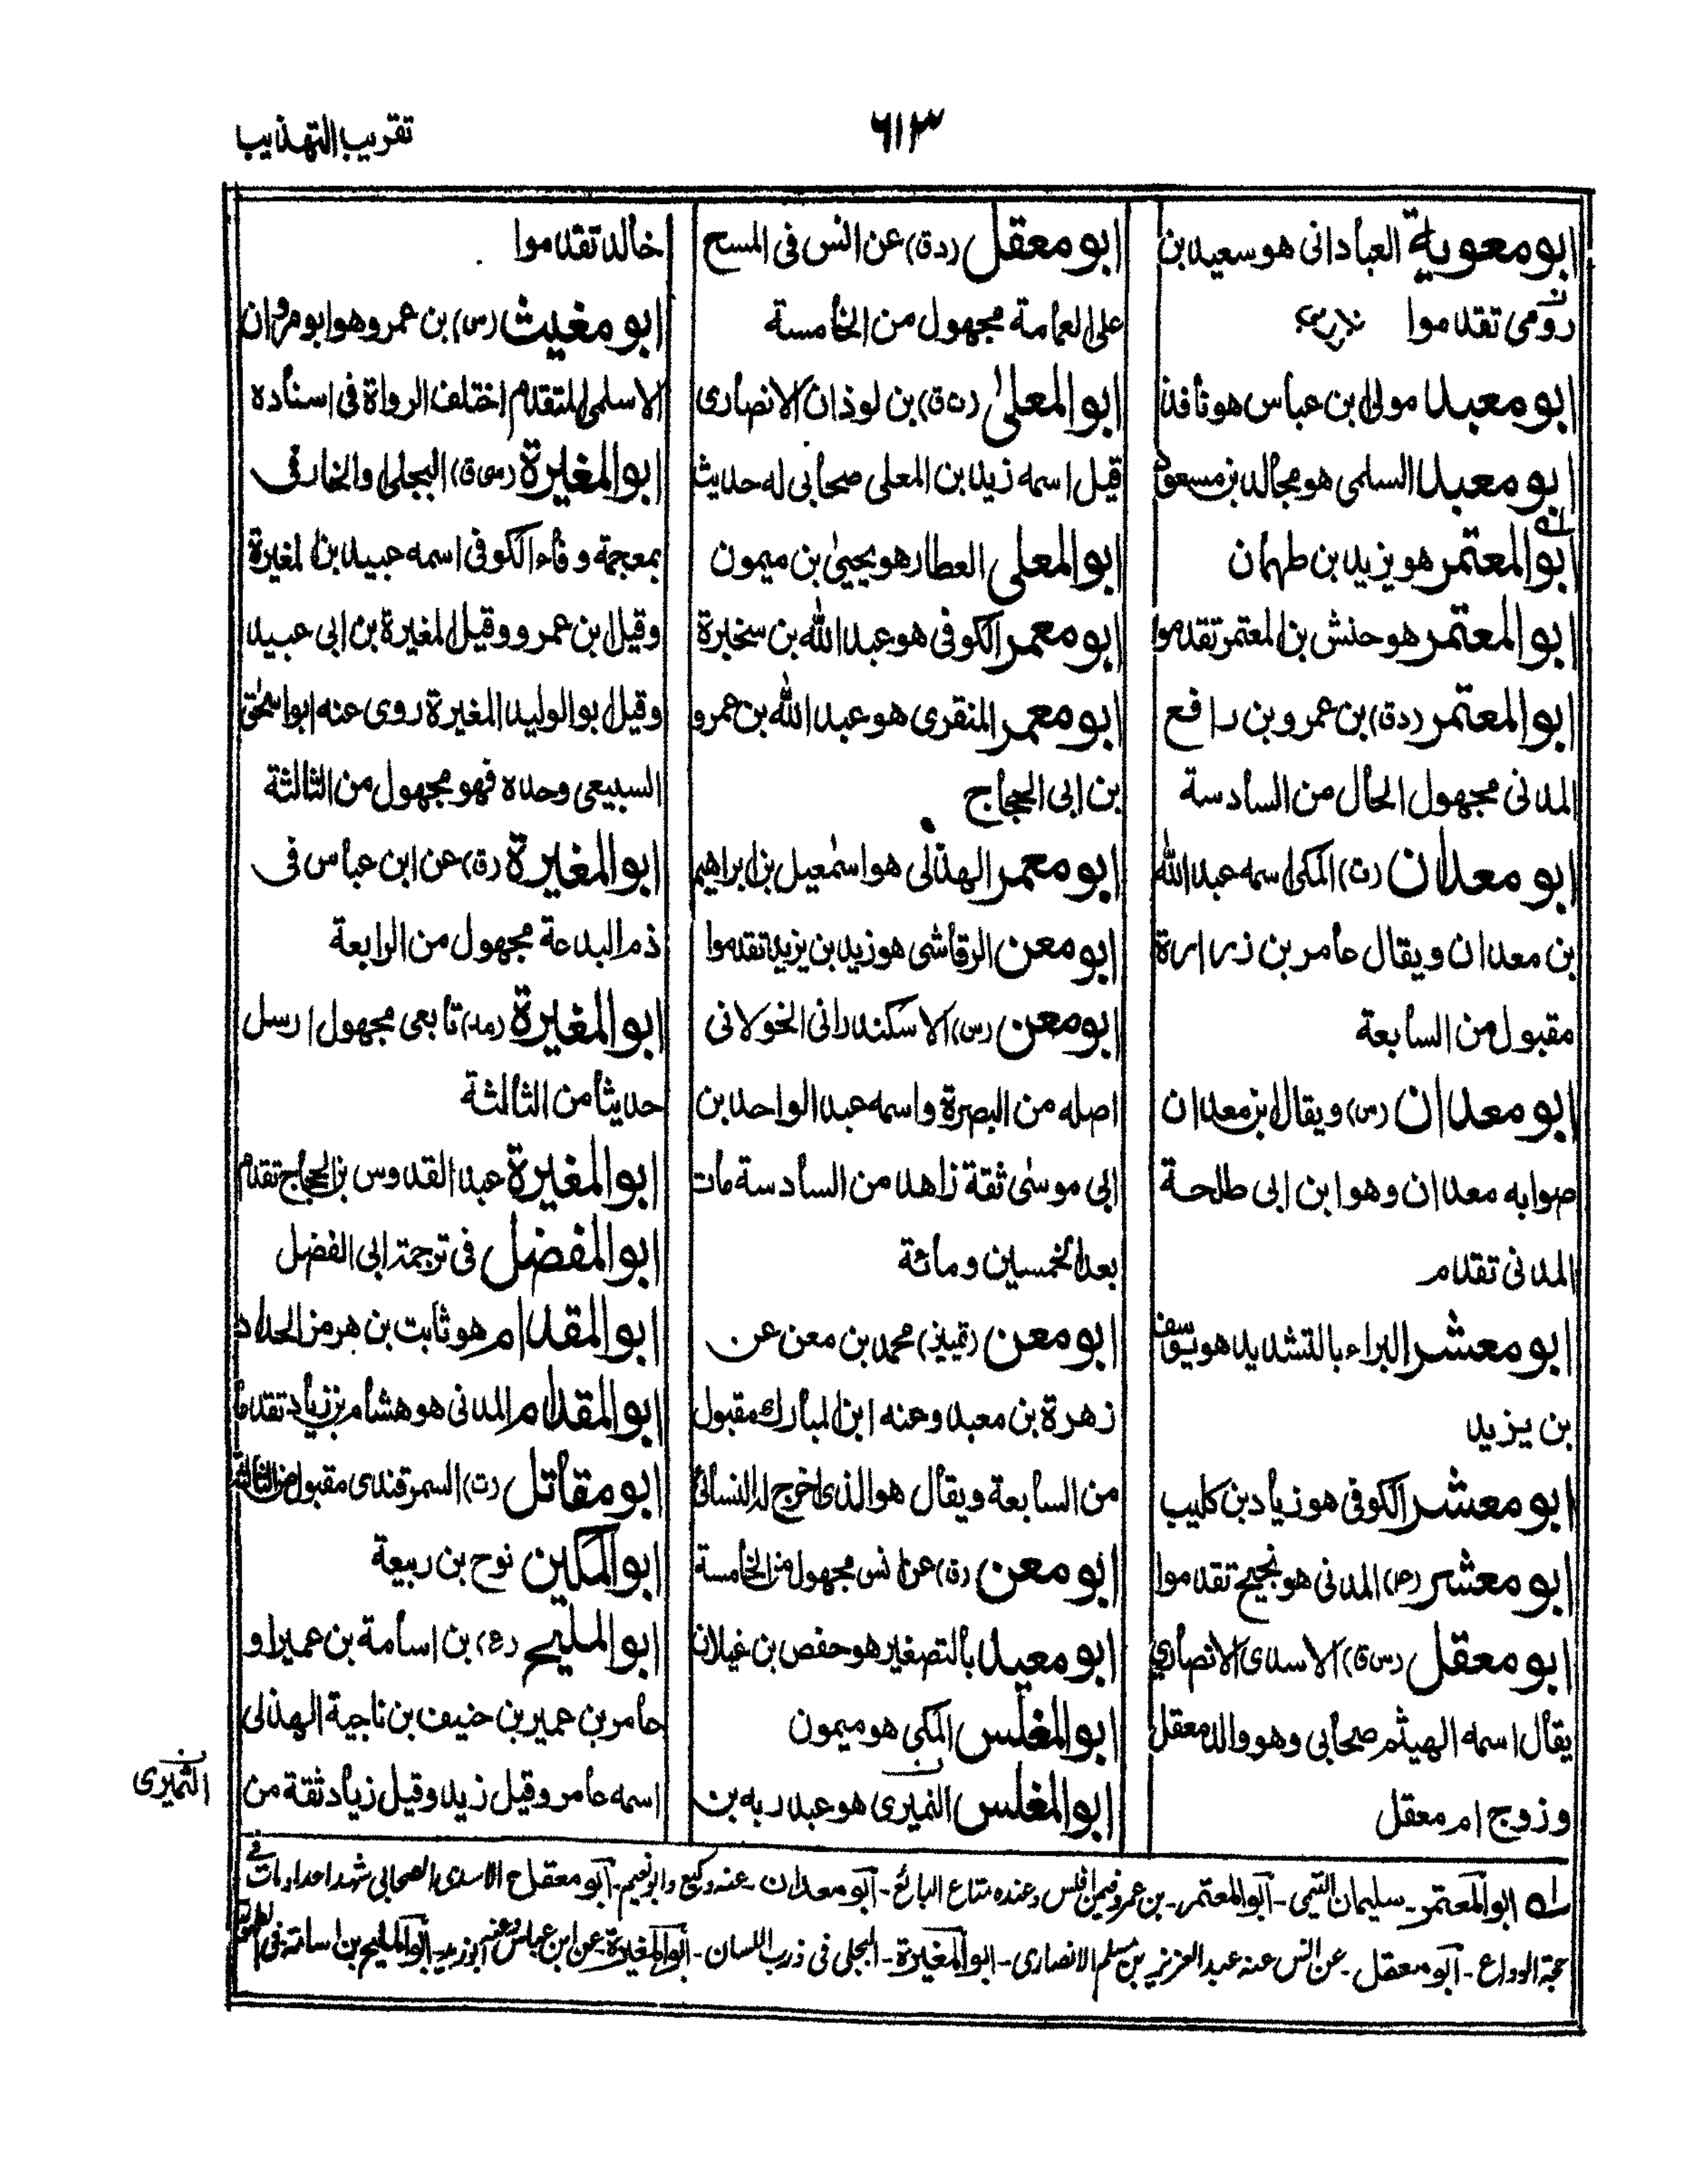 تقريب التهذيب
٦١٣
ابو معوية العبادانى هو سعيد بن
زومى تقدموا
ابو معبد مولى ابن عباس هو نافذ
ابو معبد السلمى هو مجالد بن مسعود
ابو المعتمر هو يزيد بن طهمان
ابو المعتمر هو حنش بن المعتمر تقدموا
ابو المعتمر (دق) بن عمرو بن رافع
المدنى مجهول الحال من السادسة
ابو معدان (ت) المكى اسمه عبد الله
بن معدان ويقال عامر بن زرارة
مقبول من السابعة
ابو معدان (س) ويقال ابن معدان
صوابه معدان وهو ابن ابى طلحة
المدنى تقدم
ابو معشر البراء بالتشديد هو يوسف
بن يزيد
ابو معشر الكوفى هو زياد بن كليب
ابو معشر المدنى هو نجيح تقدموا
ابو معقل (س ق) الاسدى الانصارى
يقال اسمه الهيثم صحابى وهو والد معقل
وزوج ام معقل
ابو معقل (دق) عن انس فى المسح
على العمامة مجهول من الخامسة
ابو المعلى (ت ق) بن لوذان الانصارى
قيل اسمه زيد بن المعلى صحابى له حديث
ابو المعلى العطار هو يحيى بن ميمون
ابو معمر الكوفى هو عبد الله بن سخبرة
ابو معمر المنقرى هو عبد الله بن عمرو
بن ابى الحجاج
ابو معمر الهذلى هو اسمعيل بن ابراهيم
ابو معن الرقاشى هو زيد بن يزيد تقدموا
ابو معن (س) الاسكندرانى الخولانى
اصله من البصرة واسمه عبد الواحد بن
ابى موسى ثقة زاهد من السادسة مات
بعد الخمسين ومائة
ابو معن (تمييز) محمد بن معن عن
زهرة بن معبد وعنه ابن المبارك مقبول
من السابعة ويقال هو الذى اخرج له النسائى
ابو معن (ق) عن انس مجهول من الخامسة
ابو معيد بالتصغير هو حفص بن غيلان
ابو المغلس المكى هو ميمون
ابو المغلس النميرى هو عبد ربه بن
خالد تقدموا
ابو مغيث (س) بن عمرو هو ابو مروان
الاسلمى المتقدم اختلف الرواة فى اسناده
ابو المغيرة (سى ق) البجلى او الخارفى
بمعجمة وفاء الكوفى اسمه عبيد بن المغيرة
وقيل بن عمرو وقيل المغيرة بن ابى عبيد
وقيل ابو الوليد المغيرة روى عنه ابو اسحق
السبيعى وحده فهو مجهول من الثالثة
ابو المغيرة (ق) عن ابن عباس فى
ذم البدعة مجهول من الرابعة
ابو المغيرة (مد) تابعى مجهول ارسل
حديثا من الثالثة
ابو المغيرة عبد القدوس بن الحجاج تقدم
ابو المفضل فى ترجمة ابى الفضل
ابو المقدام هو ثابت بن هرمز الحداد
ابو المقدام المدنى هو هشام بن زياد تقدما
ابو مقاتل (ت) السمرقندى مقبول من الثامنة
ابو المكين نوح بن ربيعة
ابو المليح (ع) بن اسامة بن عمير او
عامر بن عمير بن حنيف بن ناجية الهذلى
اسمه عامر وقيل زيد وقيل زياد ثقة من
النميرى
له ابو المعتمر - سليمان التيمى - ابو المعتمر - بن عمرو فيمن افلس وعنده متاع البائع - ابو معدان - عنه وكيع وابو نعيم - ابو معقل ح الاسدى الصحابى شهد احدا ومات فى
حجة الوداع - ابو معقل - عن انس عنه عبد العزيز بن مسلم الانصارى - ابو المغيرة - البجلى فى ذرب اللسان - ابو المغيرة - عن ابن عباس وعنه ابو زيد - ابو المليح بن اسامة فى